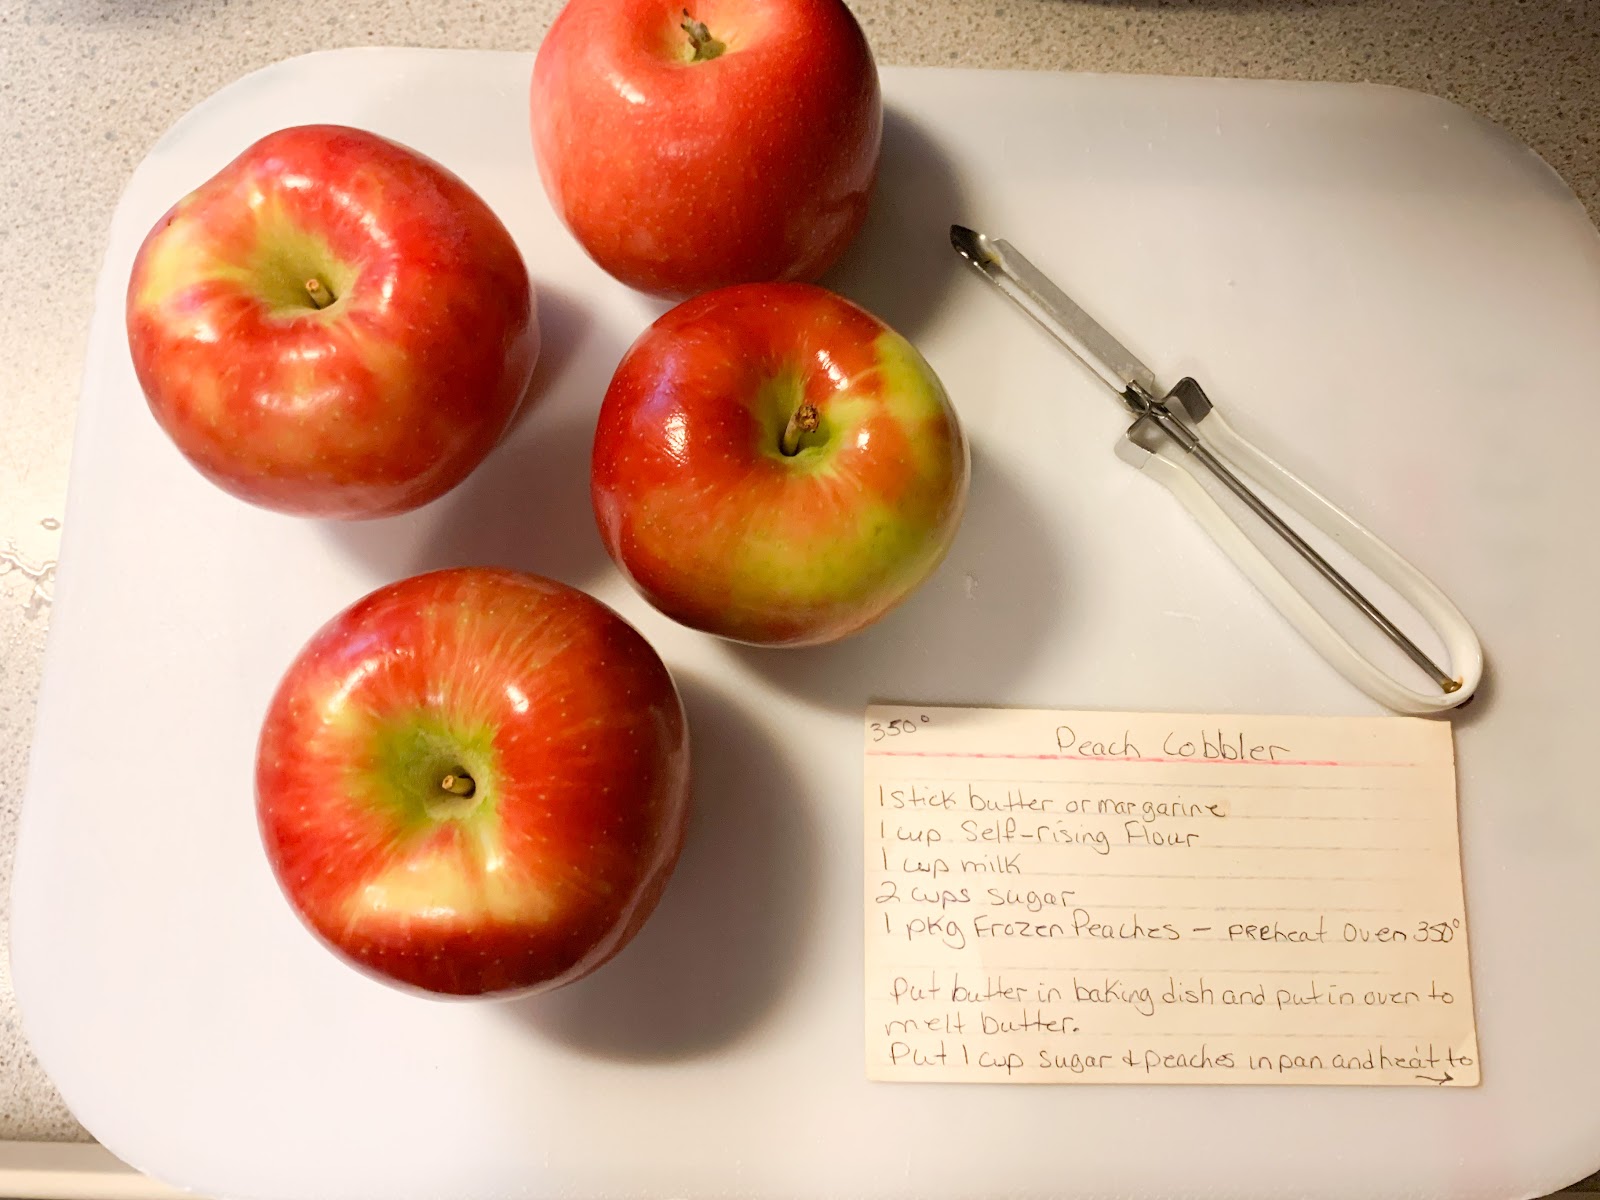 350°
Peach Cobbler
1 stick butter or margarine
1 cup Self-rising Flour
1 cup milk
2 cups sugar
1 pkg Frozen Peaches - PREheat Oven 350°
Put butter in baking dish and put in oven to
melt butter.
Put 1 cup sugar & peaches in pan and heat to
→